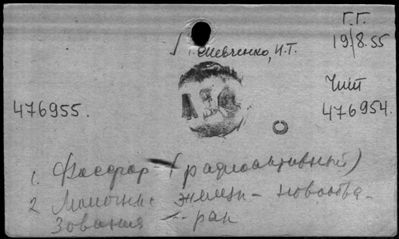 Г.Г.
19/8.55
Шевченко, И.Т.
Чит
476955.
476954.
1. Фосфор (радиоактивный)
2 Молочные железы - новообра-
зования - рак